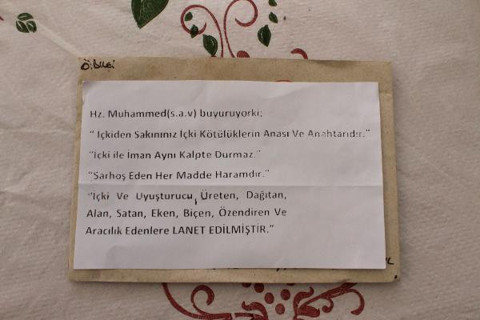 Hz. Muhammed(s.a.v) buyuruyorki;
" İçkiden Sakınınız İçki Kötülüklerin Anası Ve Anahtarıdır."
"İçki ile İman Aynı Kalpte Durmaz "
"Sarhoş Eden Her Madde Haramdır."
"İçki Ve Uyuşturucu Üreten, Dağıtan,
Alan, Satan, Eken, Biçen, Özendiren Ve
Aracılık Edenlere LANET EDİLMİŞTİR."